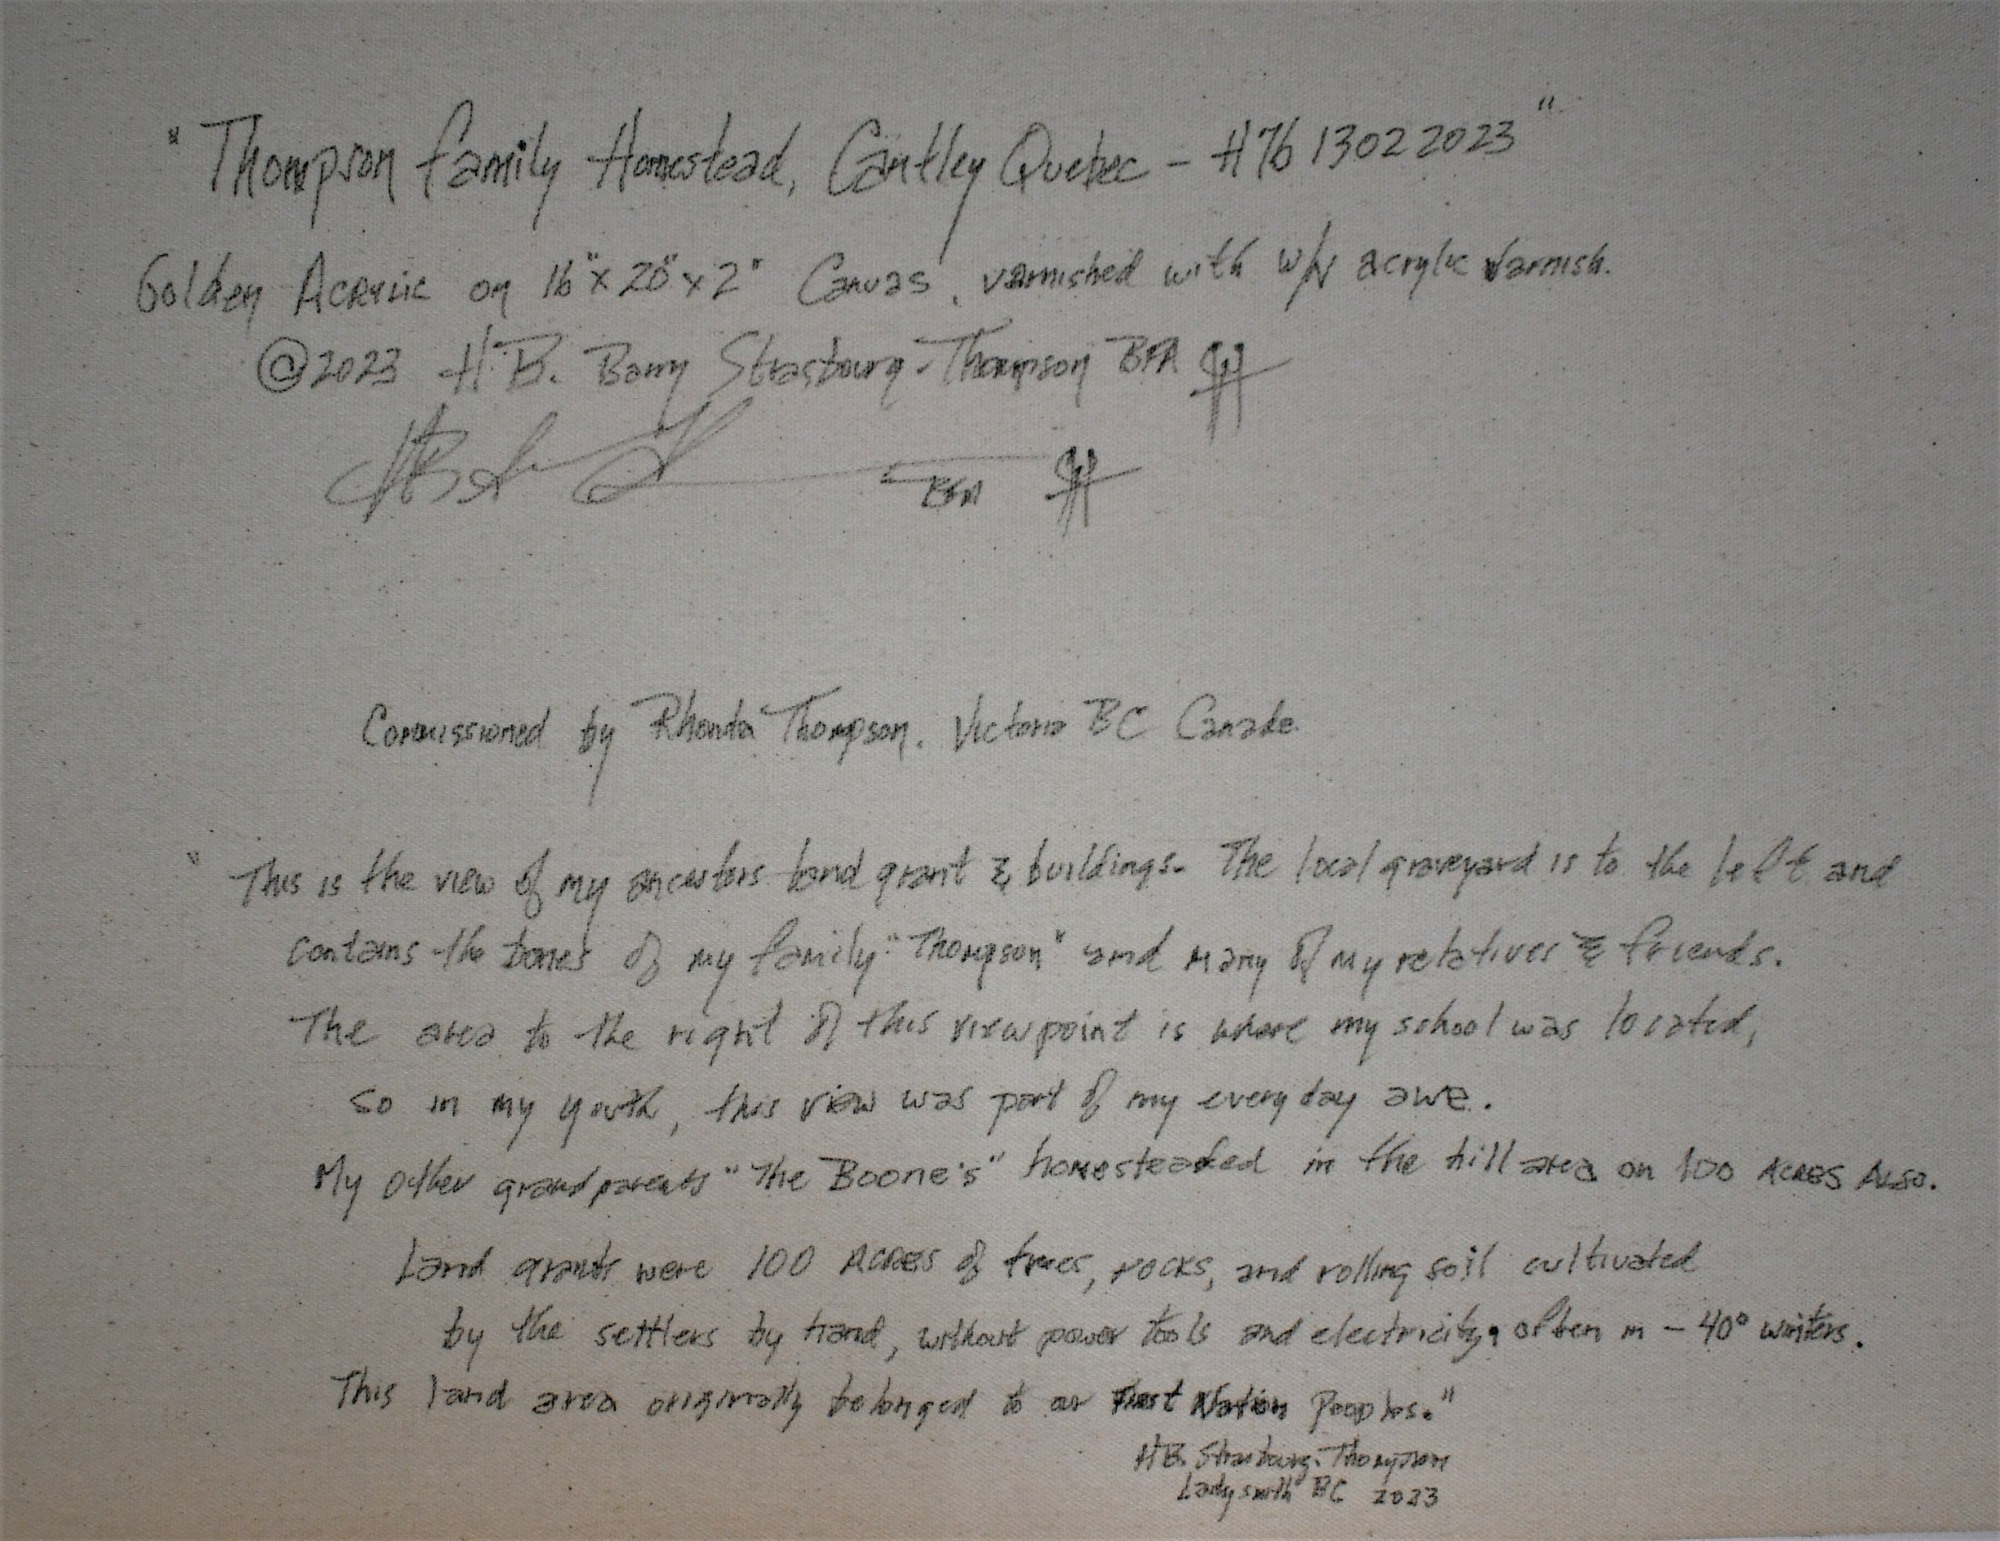 "Thompson family Homestead, Cantley Quebec - H76 13022023"
Golden Acrylic on 16"x20"x2" Canvas, varnished with w/v acrylic varnish.
©2023 H.B. Barry Strasbourg-Thompson BFA
BFA
Commissioned by Rhonda Thompson. Victoria BC Canada.
"This is the view of my ancestors land grant & buildings. The local graveyard is to the left and
contains the bones of my family "Thompson" and many of my relatives & friends.
The area to the right of this viewpoint is where my school was located,
so in my youth, this view was part of my everyday awe.
My other grandparents "The Boone's" homesteaded in the hill area on 100 Acres Also.
Land grants were 100 Acres of trees, rocks, and rolling soil cultivated
by the settlers by hand, without power tools and electricity, often in -40° winters.
This land area originally belonged to our First Nation Peoples."
HB. Strasbourg-Thompson
Ladysmith BC 2023